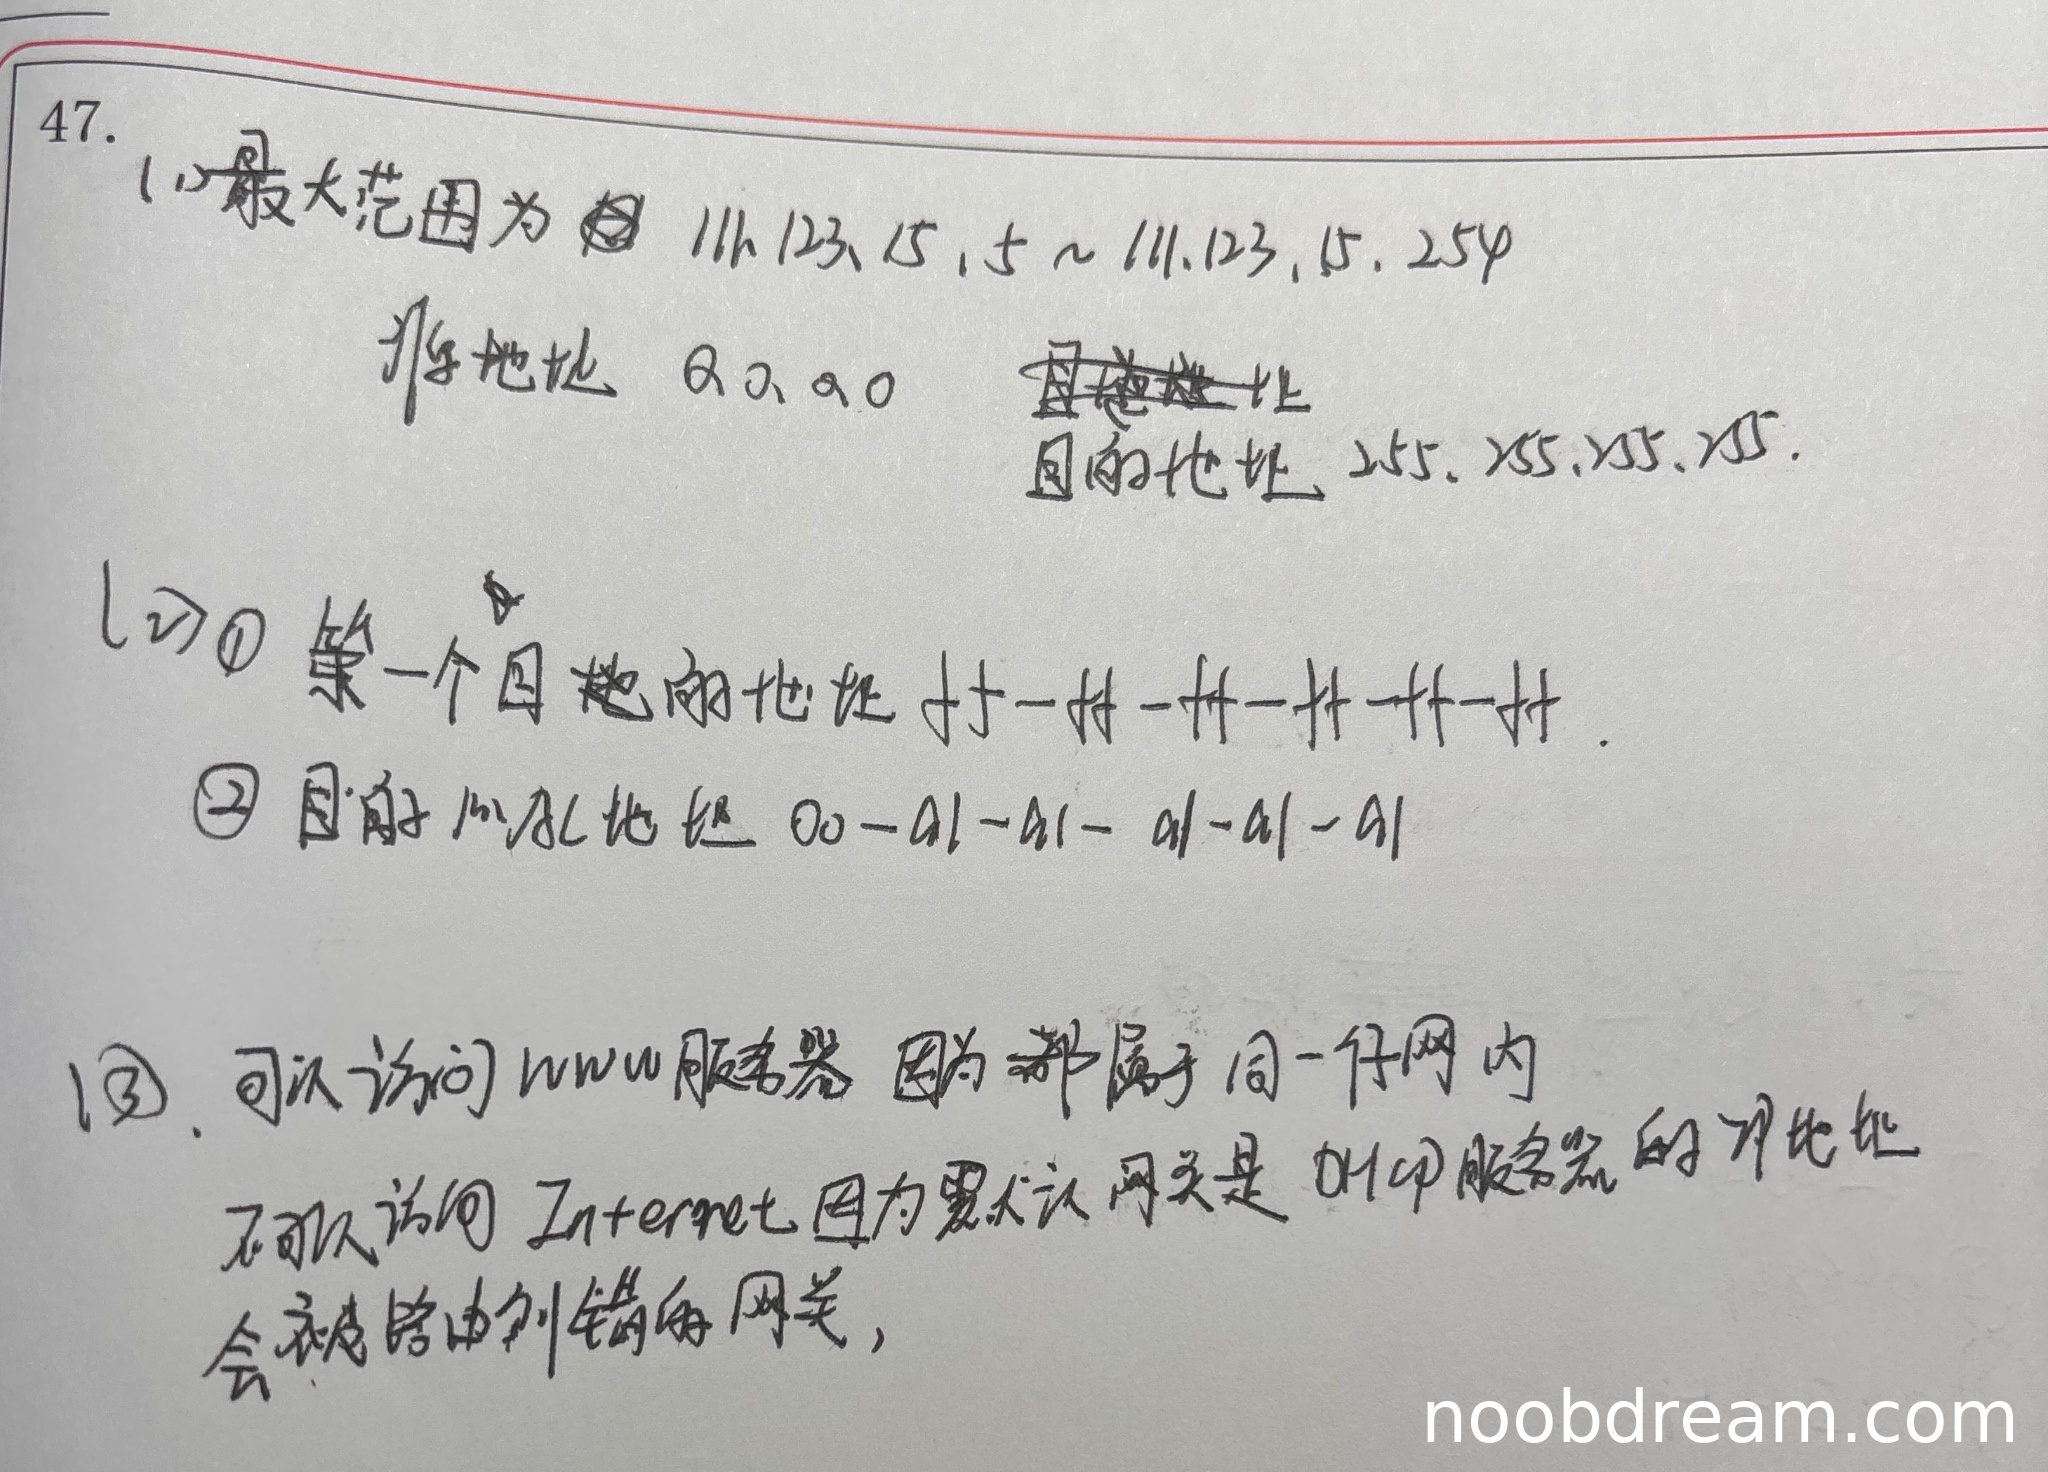 47.
(1) 最大范围为 111.123.15.5 ~ 111.123.15.254
源地址 0.0.0.0
目的地址 255.255.255.255.
(2) ① 第一个目的地址 ff-ff-ff-ff-ff-ff.
② 目的mac地址 00-a1-a1-a1-a1-a1
(3). 可以访问WWW服务器 因为都属于同一子网内
不可以访问 Internet 因为默认网关是 DHCP服务器的IP地址
会被路由到错的网关,
noobdream.com